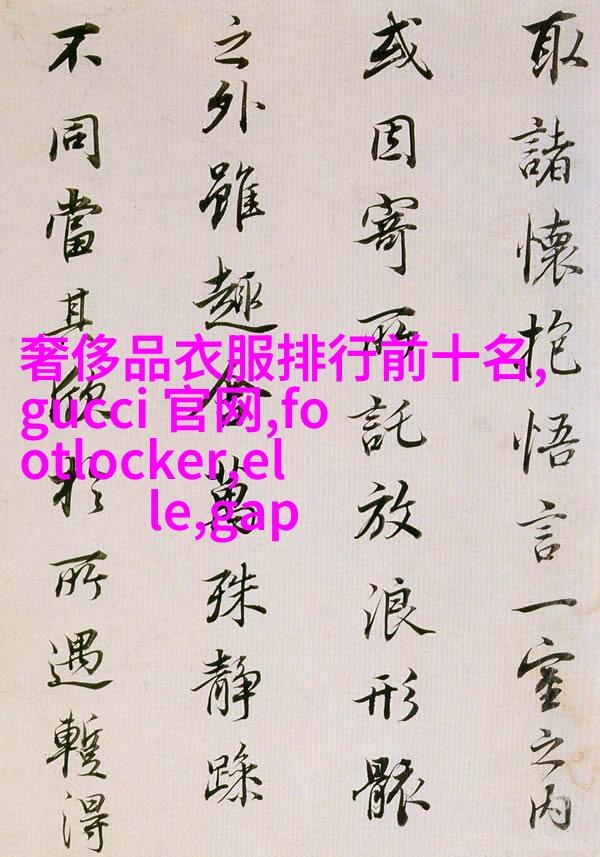 取諸懷抱悟言一室之內
或因寄所託放浪形骸
之外雖趣舍萬殊静躁
不同當其欣於所遇蹔得
奢侈品衣服排行前十名,
gucci 官网,fo
otlocker,el
le,gap